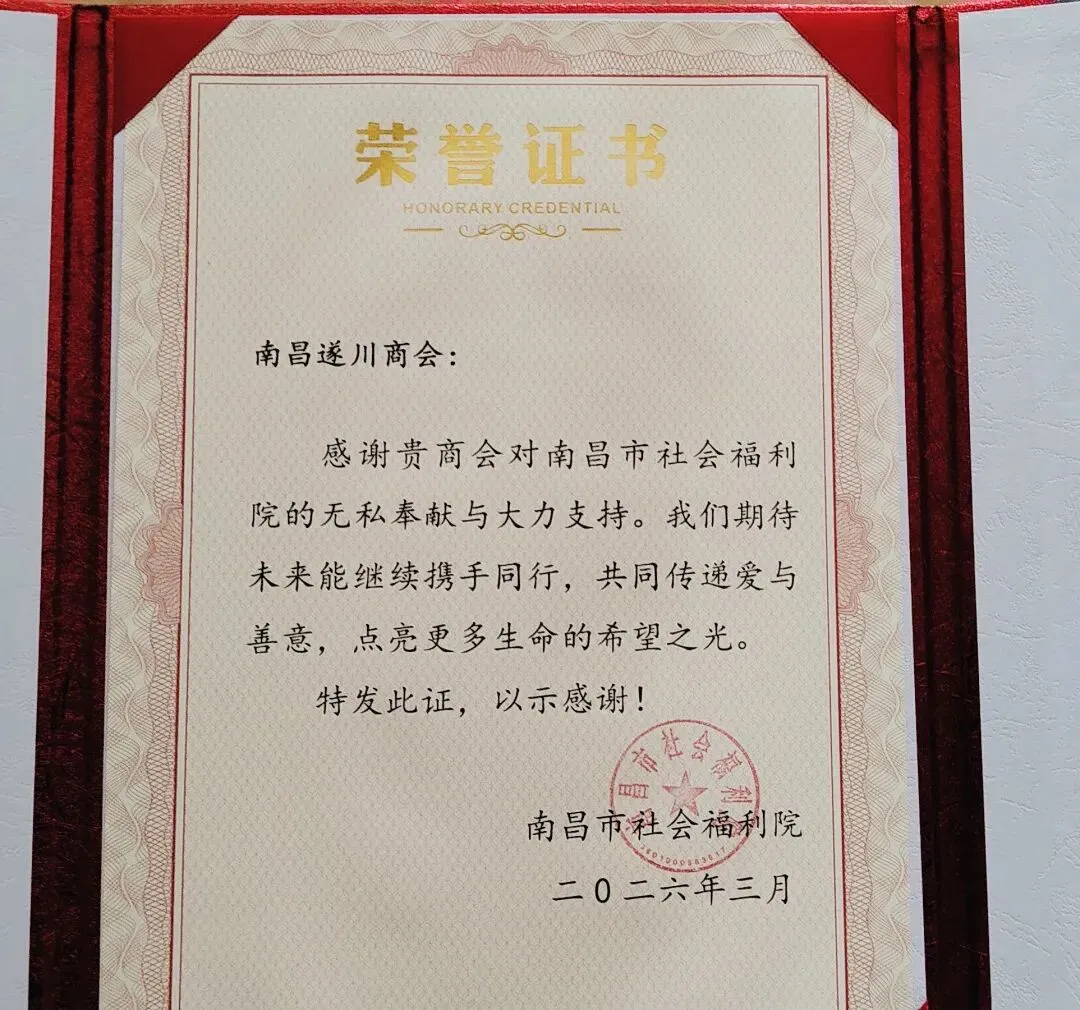 荣誉证书
HONORARY CREDENTIAL
南昌遂川商会：
感谢贵商会对南昌市社会福利
院的无私奉献与大力支持。我们期待
未来能继续携手同行，共同传递爱与
善意，点亮更多生命的希望之光。
特发此证，以示感谢！
南昌市社会福利院
南昌市社会福利院
二0二六年三月